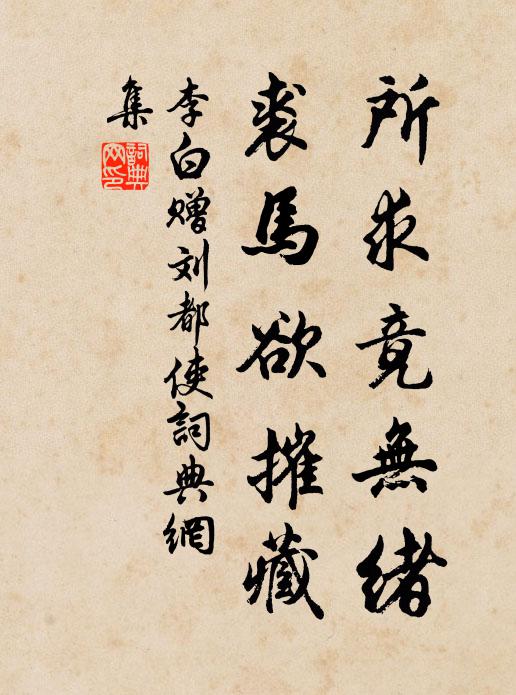 所求竟無緒
裘馬欲摧藏
李白赠刘都使詞典網
集
詞典
网印